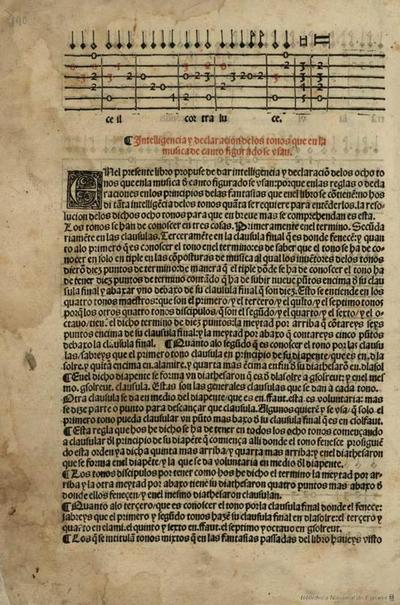 ce il cor tra lu ce.
¶Intelligencia y declaracion delos tonos que en la
musica de canto figurado se vsan.
EN el presente libro propuse de dar intelligencia y declaraciō delos ocho to
nos que enla musica ð canto figurado se vsan: porque enlas reglas o decla
raciones enlos principios delas fantasias que enel libro se cōtienē no hos
di tāta intelligēcia delos tonos quāta se requiere para entēder toda la reso
lucion delos dichos ocho tonos para que en breue mas se comprehendan es esta.
Los tonos se han de conoscer en tres cosas. Primeramente enel termino. Segūda
ramēte en las clausulas. Terceramēte en la clausula final q̄ es donde fenecē y quan
to alo primero q̄ es conoscer el tono enel termino es de saber que el tono se ha de co
nocer en solo en tiple en las cōposturas de musica al qual los inuētores delos tonos
dierō diez puntos de termino de manera q̄ el tiple dōde se ha de conocer el tono ha
de tener diez puntos de termino
sula final y abaxar vno debaxo de su clausula final q̄ son diez. Esto se entiende en los
quatro tonos maestros: que son el primero y el tercero y el quīto y el septimo tonos
porq̄ los otros quatro tonos discipulos q̄ son el segūdo y el quarto y el sexto y el o-
ctauo, tienē el dicho termino de diez puntos: la meytad por arriba
puntos encima de su clausula final y la meytad por abaxo q̄ contareys cinco pūtos
debaxo la clausula final. ¶Quanto alo segūdo q̄ es conoscer el tono por las clausu
las, sabreys que el primero tono clausula en principio de su diapente que es en. d. la
solre. y quinta encima en. alamire. y quarta mas ēcima enfin de su diathesarō en. dlasol
¶Enel dicho diapente se forma vn diathesaron q̄ es ð dlasolre a gsolreut: y enel mes
mo. gsolreut. clausula. Estas son las generales clausulas que se dan a cada tono.
Otra clausula se da en medio del diapente: que es en. ffaut. esta es voluntaria: mas
se dize parte o punto para descançar que clausula. Algunos quierē y se vsa: q̄ solo el
primero tono pueda clausular vn pūto mas baxo ð su clausula final
¶Esta regla que hos he dicho se ha de tener en todos los ocho tonos començando
a clausular ðl principio de su diapēte q̄ comiença alli donde el tono fenesce prosiguiē
do esta orden ya dicha quinta mas arriba: y quarta mas arriba: y enel diathesaron
que se forma enel diapēte: y la que se da voluntaria en medio ðl diapente.
¶Los tonos discipulos por tener como hos he dicho el termino la meytad por ar
riba y la otra meytad por abaxo tiene su diathesaron quatro puntos mas abaxo ð
donde ellos fenecen: y enel mesmo diathesaron clausulan.
¶Quanto alo tercero: que es conoscer el tono por la clausula final donde el fenece:
sabreys que el primero y segūdo tonos hazē su clausula final en dlasolre: el tercero y
quarto en elami. el quinto y sexto en. ffaut. el septimo y octauo en gsolreut.
¶Los q̄ se intitulā tonos mixtos q̄ en las fantasias passadas del libro haueys visto
Biblioteca Nacional de España